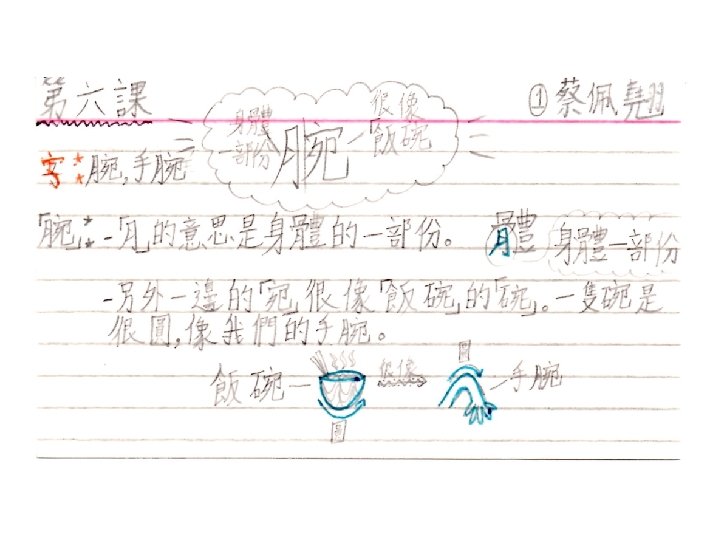 第六課
①蔡佩翹
身體
一部份
腕
很像
飯碗
字:腕,手腕
「腕」:-「月」的意思是身體的一部份。 體 身體一部份
-另外一邊的「宛」很像「飯碗」的「碗」。一隻碗是
很圓,像我們的手腕。
飯碗一 很像 圓 一手腕
圓